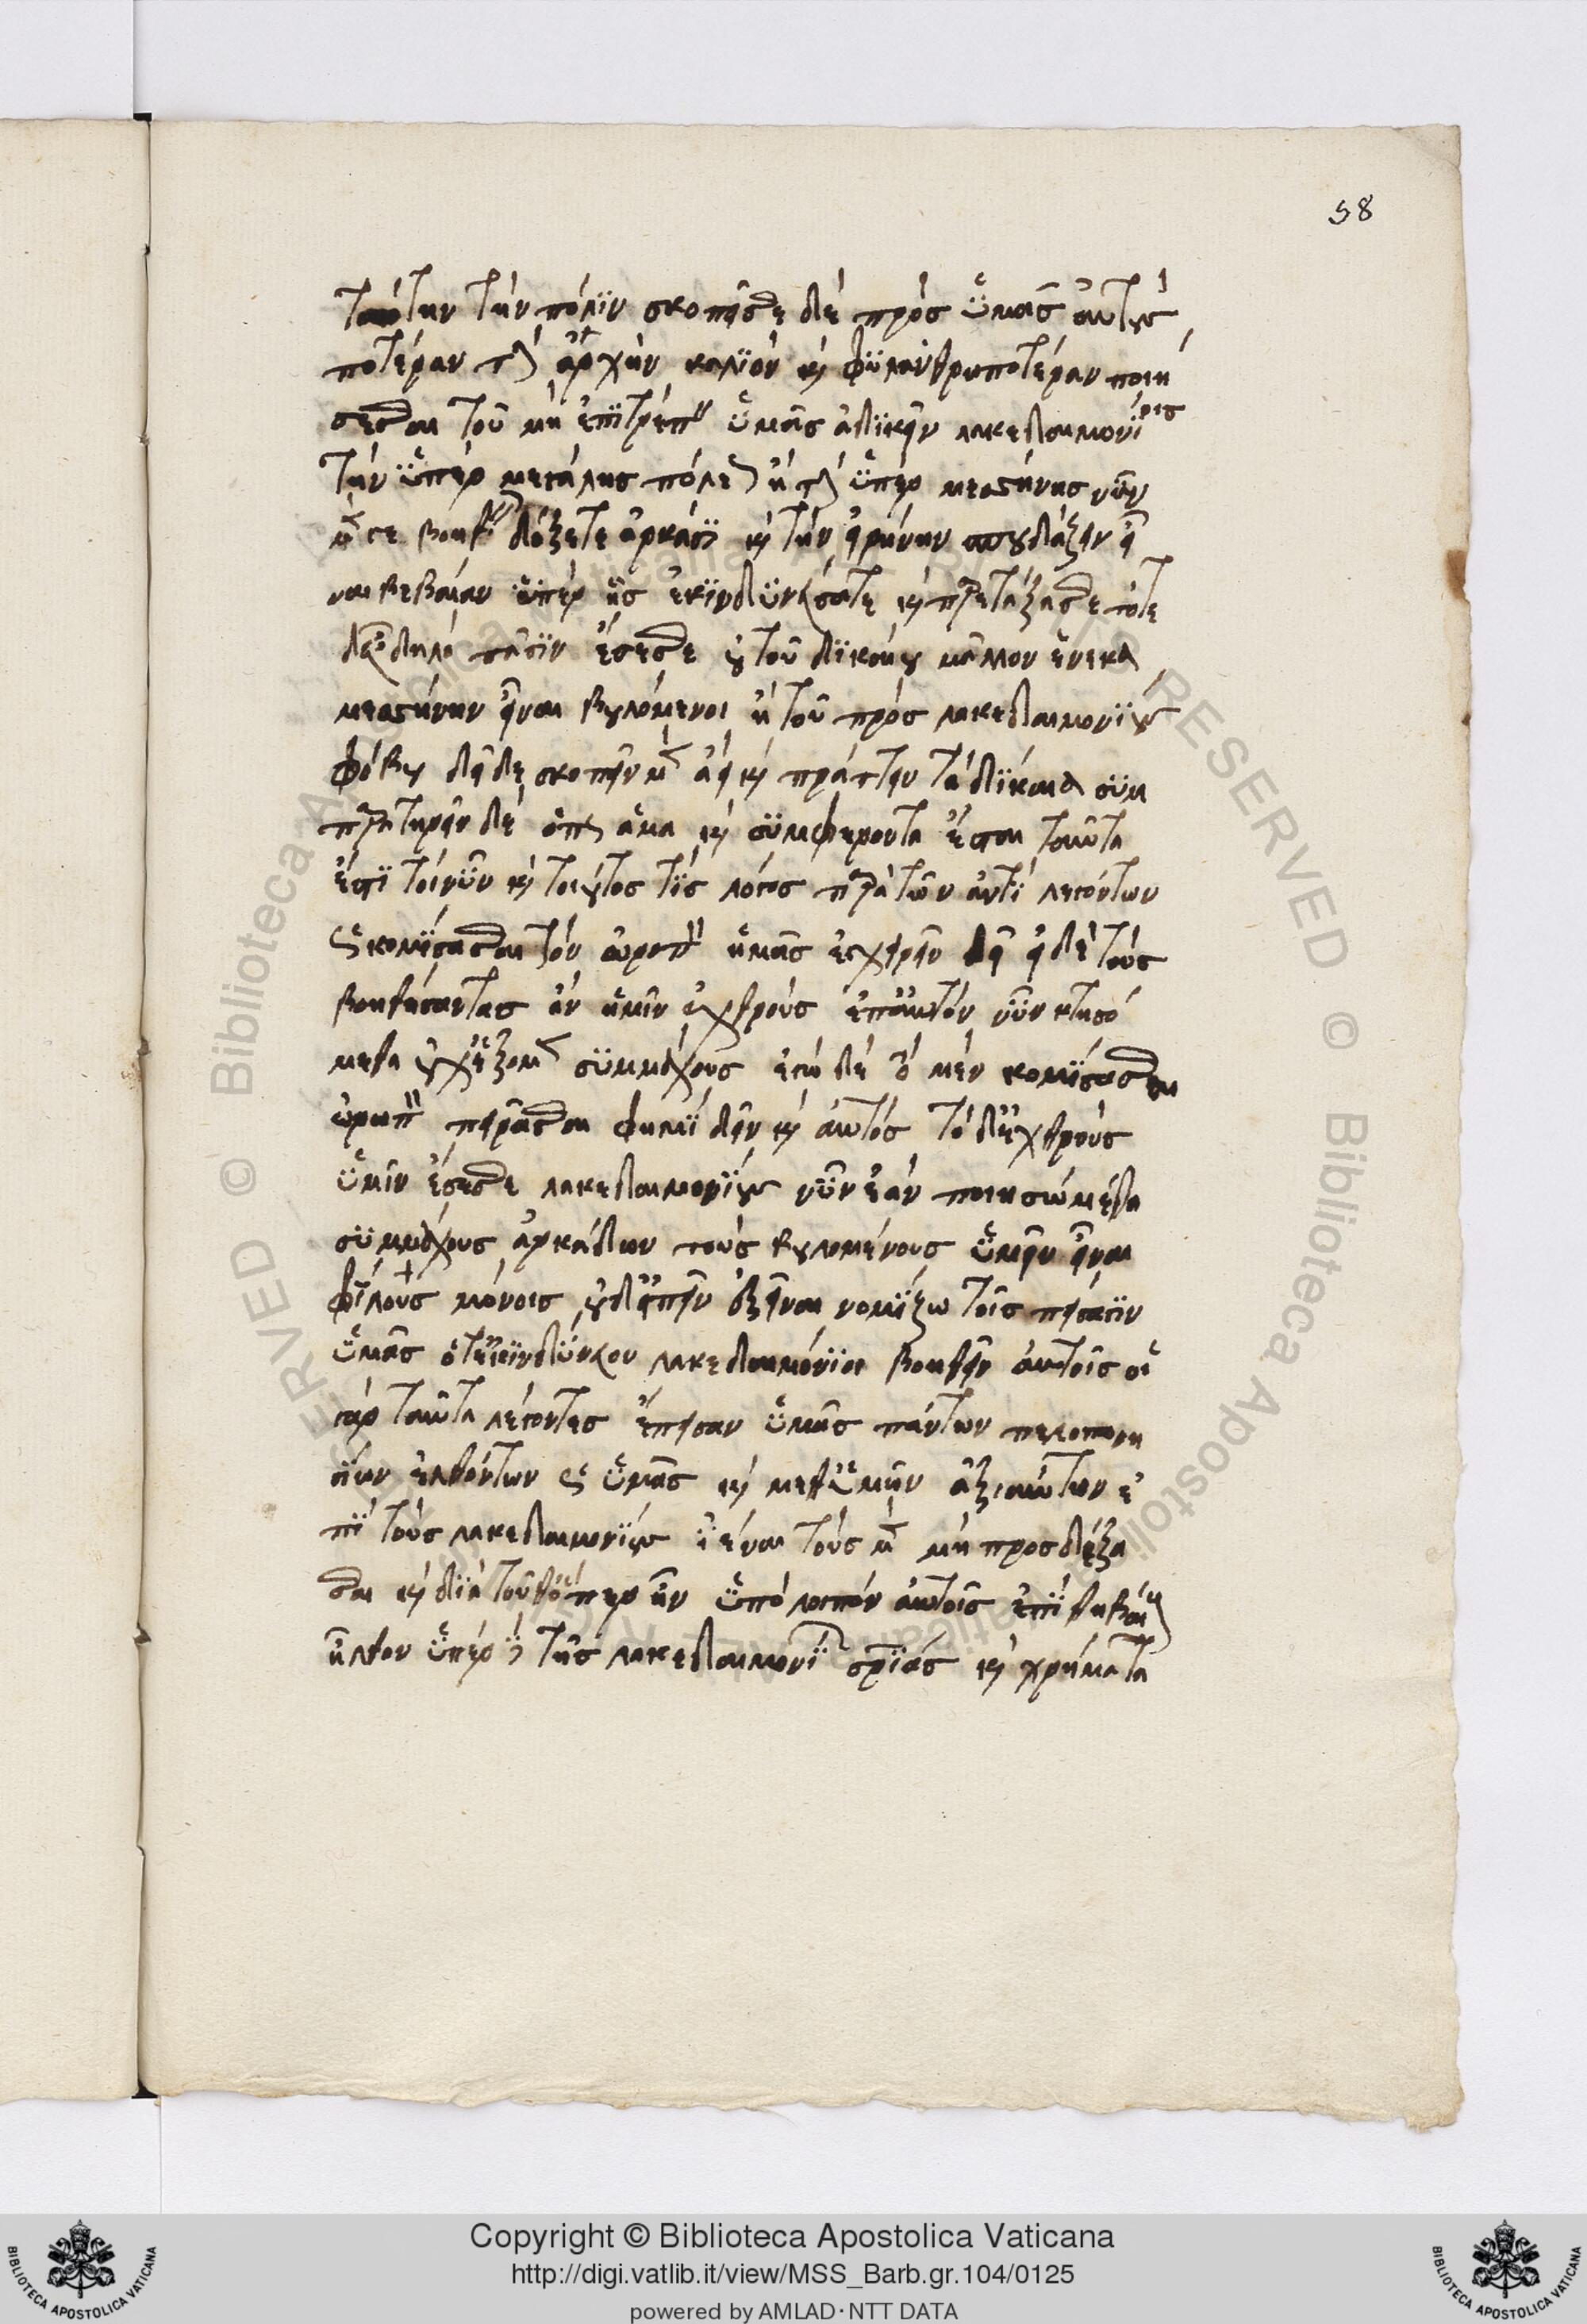 58
ταύτην τὴν πόλϊν σκοπεῖσθε δὲ πρὸς ὑμᾶς αὐτοὺς
ποτέραν τὴν ἀρχὴν καλΐον καὶ φϋλανθρωποτέραν ποιή
σεσθαι τοῦ μὴ ἐπϊτρέπειν ὑμᾶς ἀδϊκεῖν λακεδαιμονΐοις
τὴν ὑπὲρ μεγάλης πόλεως ἢ τὴν ὑπὲρ μεσήνης νῦν
μέν γε βοηθεῖν δόξετε ἀρκάσϊ καὶ τὴν εἰρήνην σπουδάζειν εἶ
ναι βεβαίαν ὑπὲρ ἧς ἐκϊνδϋνεύσατε καὶ παρετάξασθε τότε
δὲ εὔδηλοι πᾶσϊν ἔσεσθε οὐ τοῦ δϊκαίου μᾶλλον ἕνεκα
μεσήνην εἶναι βουλόμενοι ἢ τοῦ πρὸς λακεδαιμονΐους
φόβου δεῖ δὲ σκοπεῖν μὲν ἀεὶ καὶ πράττειν τὰ δΐκαια σϋμ
παρατηρεῖν δὲ ὅπως ἅμα καὶ σϋμφέροντα ἔσται ταῦτα
ἔστϊ τοίνϋν καὶ τοιοῦτος τϊς λόγος παρὰ τῶν ἀντϊ λεγόντων
ὡς κομΐσασθαι τὸν ὠρωπὸν ἡμᾶς ἐγχειρεῖν δεῖ εἰ δὲ τοὺς
βοηθήσαντας ἂν ἡμῖν ἐχθροὺς ἐπ' αὐτὸν νῦν κτησό
μεθα οὐχ ἕξομεν σϋμμάχους ἐγὼ δὲ τὸ μὲν κομΐσασθαι
ὠρωπὸν πειρᾶσθαι φημϊ δεῖν καὶ αὐτὸς τὸ δ' ἐχθροὺς
ὑμῖν ἔσεσθαι λακεδαιμονΐους νῦν ἐὰν ποιησώμεθα
σϋμμάχους ἀρκάδων τοὺς βουλομένους ὑμῖν εἶναι
φΐλους μόνοις οὐδ' εἰπεῖν ἐξεῖναι νομΐζω τοῖς πείσασϊν
ὑμᾶς ὅτ' ἐκϊνδΰνευον λακεδαιμόνϊοι βοηθεῖν αὐτοῖς οὐ
γὰρ ταῦτα λέγοντες ἔπεισαν ὑμᾶς πάντων πελοπονη
σίων ἐλθόντων ὡς ὑμᾶς καὶ μεθ' ὑμῶν ἀξιούντων ἐ
πϊ τοὺς λακεδαιμονΐους ἰέναι τοὺς μὲν μὴ προσδέξα
σθαι καὶ δϊὰ τοῦθ' ὅπερ ἦν ὑπόλοιπον αὐτοῖς ἐπϊ θηβαίους
ἦλθον ὑπὲρ δὲ τῆς λακεδαιμονΐων σωτηρΐας καὶ χρήματα
Copyright © Biblioteca Apostolica Vaticana
http://digi.vatlib.it/view/MSS_Barb.gr.104/0125
powered by AMLAD·NTT DATA